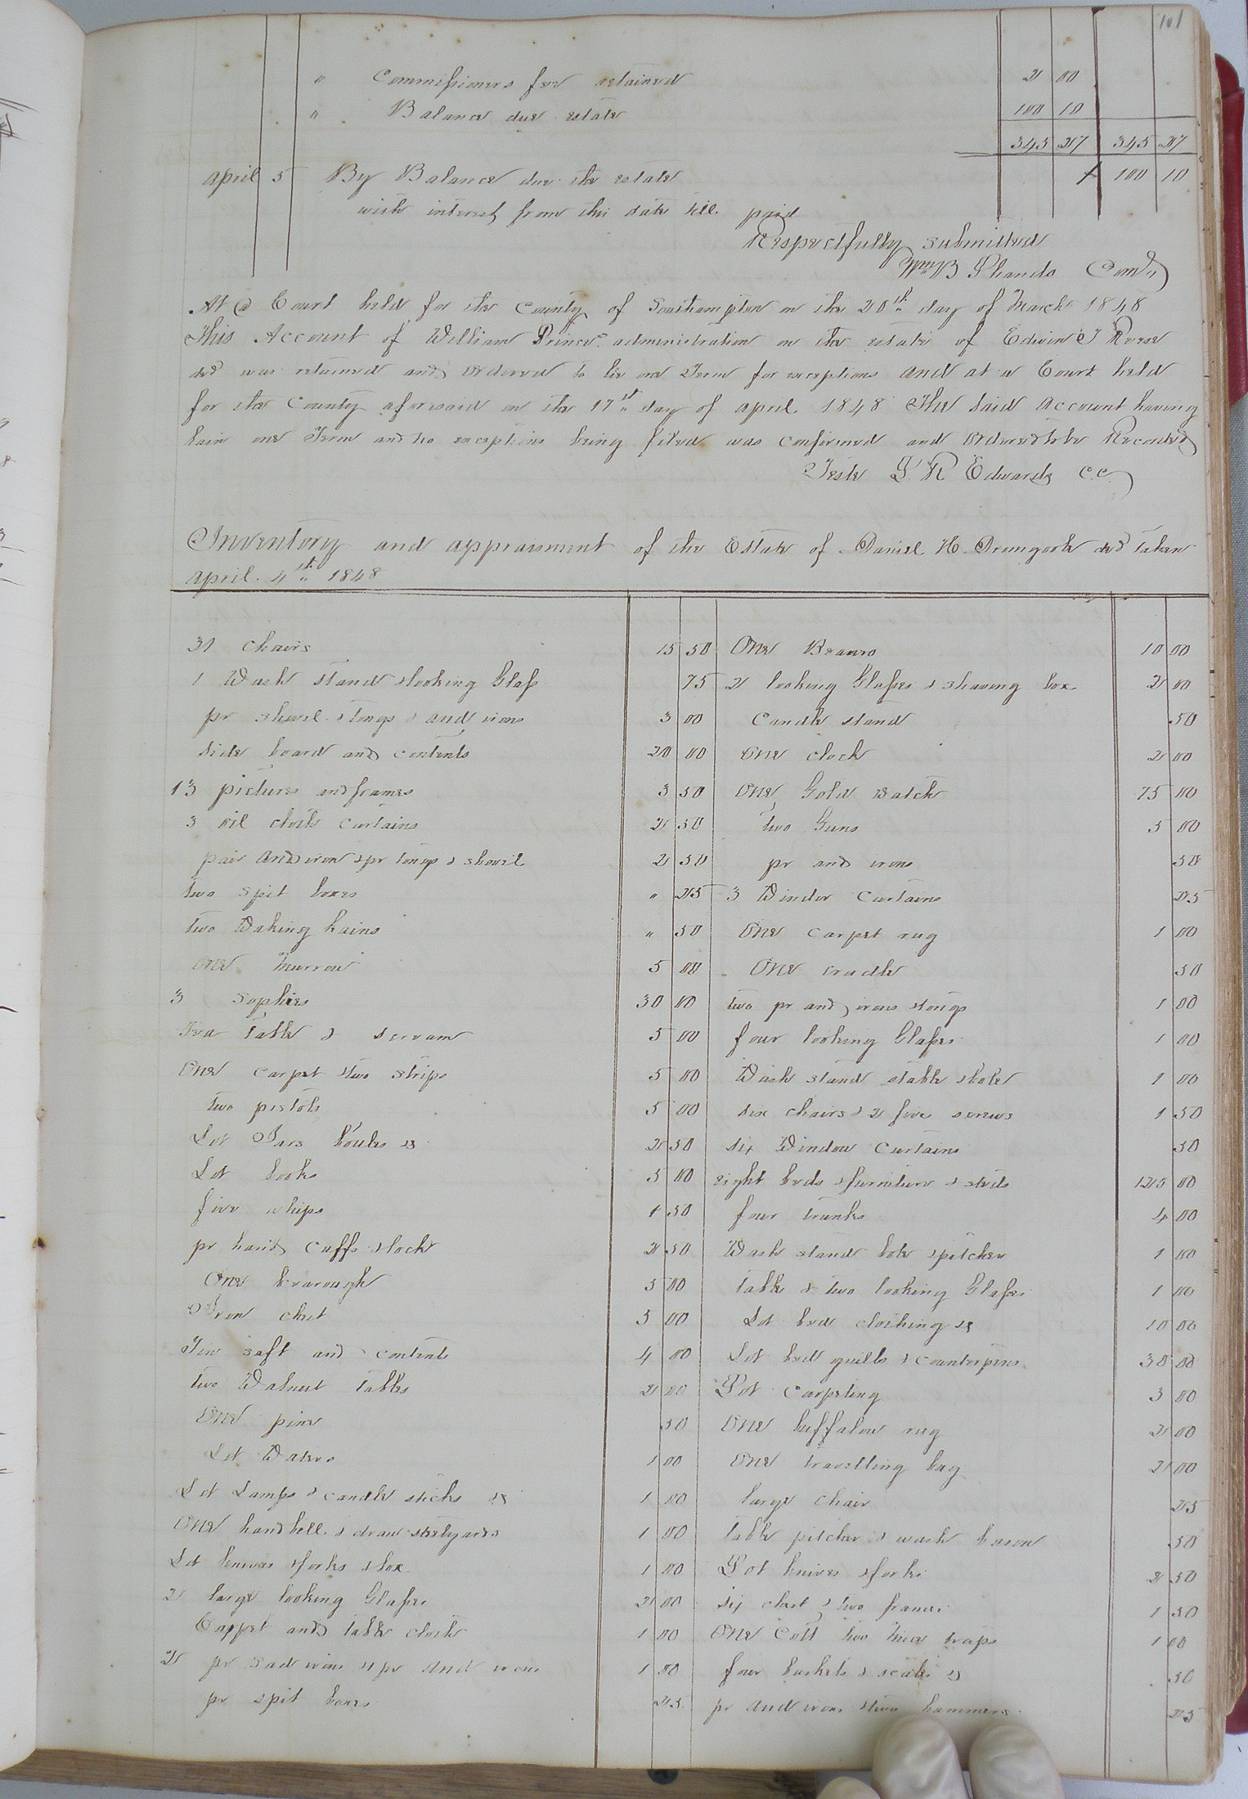 101
" Commissioners fee retained 2 00
" Balance due estate 100 10
343 27 343 27
April 5 By Balance due the estate 100 10
with interest from this date till paid
Respectfully submitted
Wm B Shands Com.
At a Court held for the County of Southampton on the 20th day of March 1848
This Account of William Prince administration on the estate of Edwin T
decd was returned and ordered to lie one Term for exceptions and at a Court held
for the County aforesaid on the 17th day of April 1848 The said account having
lain one Term and no exceptions being filed was confirmed and ordered to be Recorded
Teste L R Edwards C.C.
Inventory and appraisment of the Estate of Daniel H decd Taken
April 4th 1848
31 chairs 15 50
1 Wash stand & looking Glass 75
pr shovel & tongs & and irons 3 00
side board and contents 20 00
13 pictures and frames 3 50
3 oil cloth curtains 2 50
pair Andiron & pr tongs & shovel 2 50
two spit boxes " 25
two " 50
one 5 00
3 Sophies 30 00
Tea Table & 5 00
One carpet & two strips 5 00
two pistols 5 00
Lot Jars bottles &c 2 50
Lot books 5 00
five whips 1 50
pr hand cuffs & lock 2 50
One 5 00
Iron chest 5 00
Tin saft and contents 4 00
two Walnut Tables 2 00
One pine 50
Lot 1 00
Lot Lamps & candle sticks &c 1 00
One hand bell & draw steelyards 1 00
Lot knives & forks & box 1 00
2 large looking Glasses 2 00
Carpet and table cloth 1 00
2 pr Sad irons & pr And irons 1 00
pr spit boxes 25
One Beauro 10 00
2 looking Glasses & shaving box 2 00
Candle stand 50
One clock 2 00
One Gold Watch 75 00
two Guns 5 00
pr and irons 50
3 Window Curtains 25
One carpet rug 1 00
One cradle 50
two pr and irons & tongs 1 00
four looking Glasses 1 00
Wash stand & table & bole 1 00
six chairs & 2 fire screws 1 50
six Window Curtains 50
eight beds & furniture & steds 125 00
four trunks 4 00
Wash stand bole & pitcher 1 00
Table & two looking Glasses 1 00
Lot bed clothing &c 10 00
Lot bed quilts & counterpins 30 00
Lot carpeting 3 00
One buffalow rug 2 00
One travelling bag 2 00
large chair 25
table pitcher & wash bason 50
Lot knives & forks 2 50
six chest & two frames 1 50
One Colt two traps 1 00
four baskets & scales &c 50
pr and irons & two hammers 25